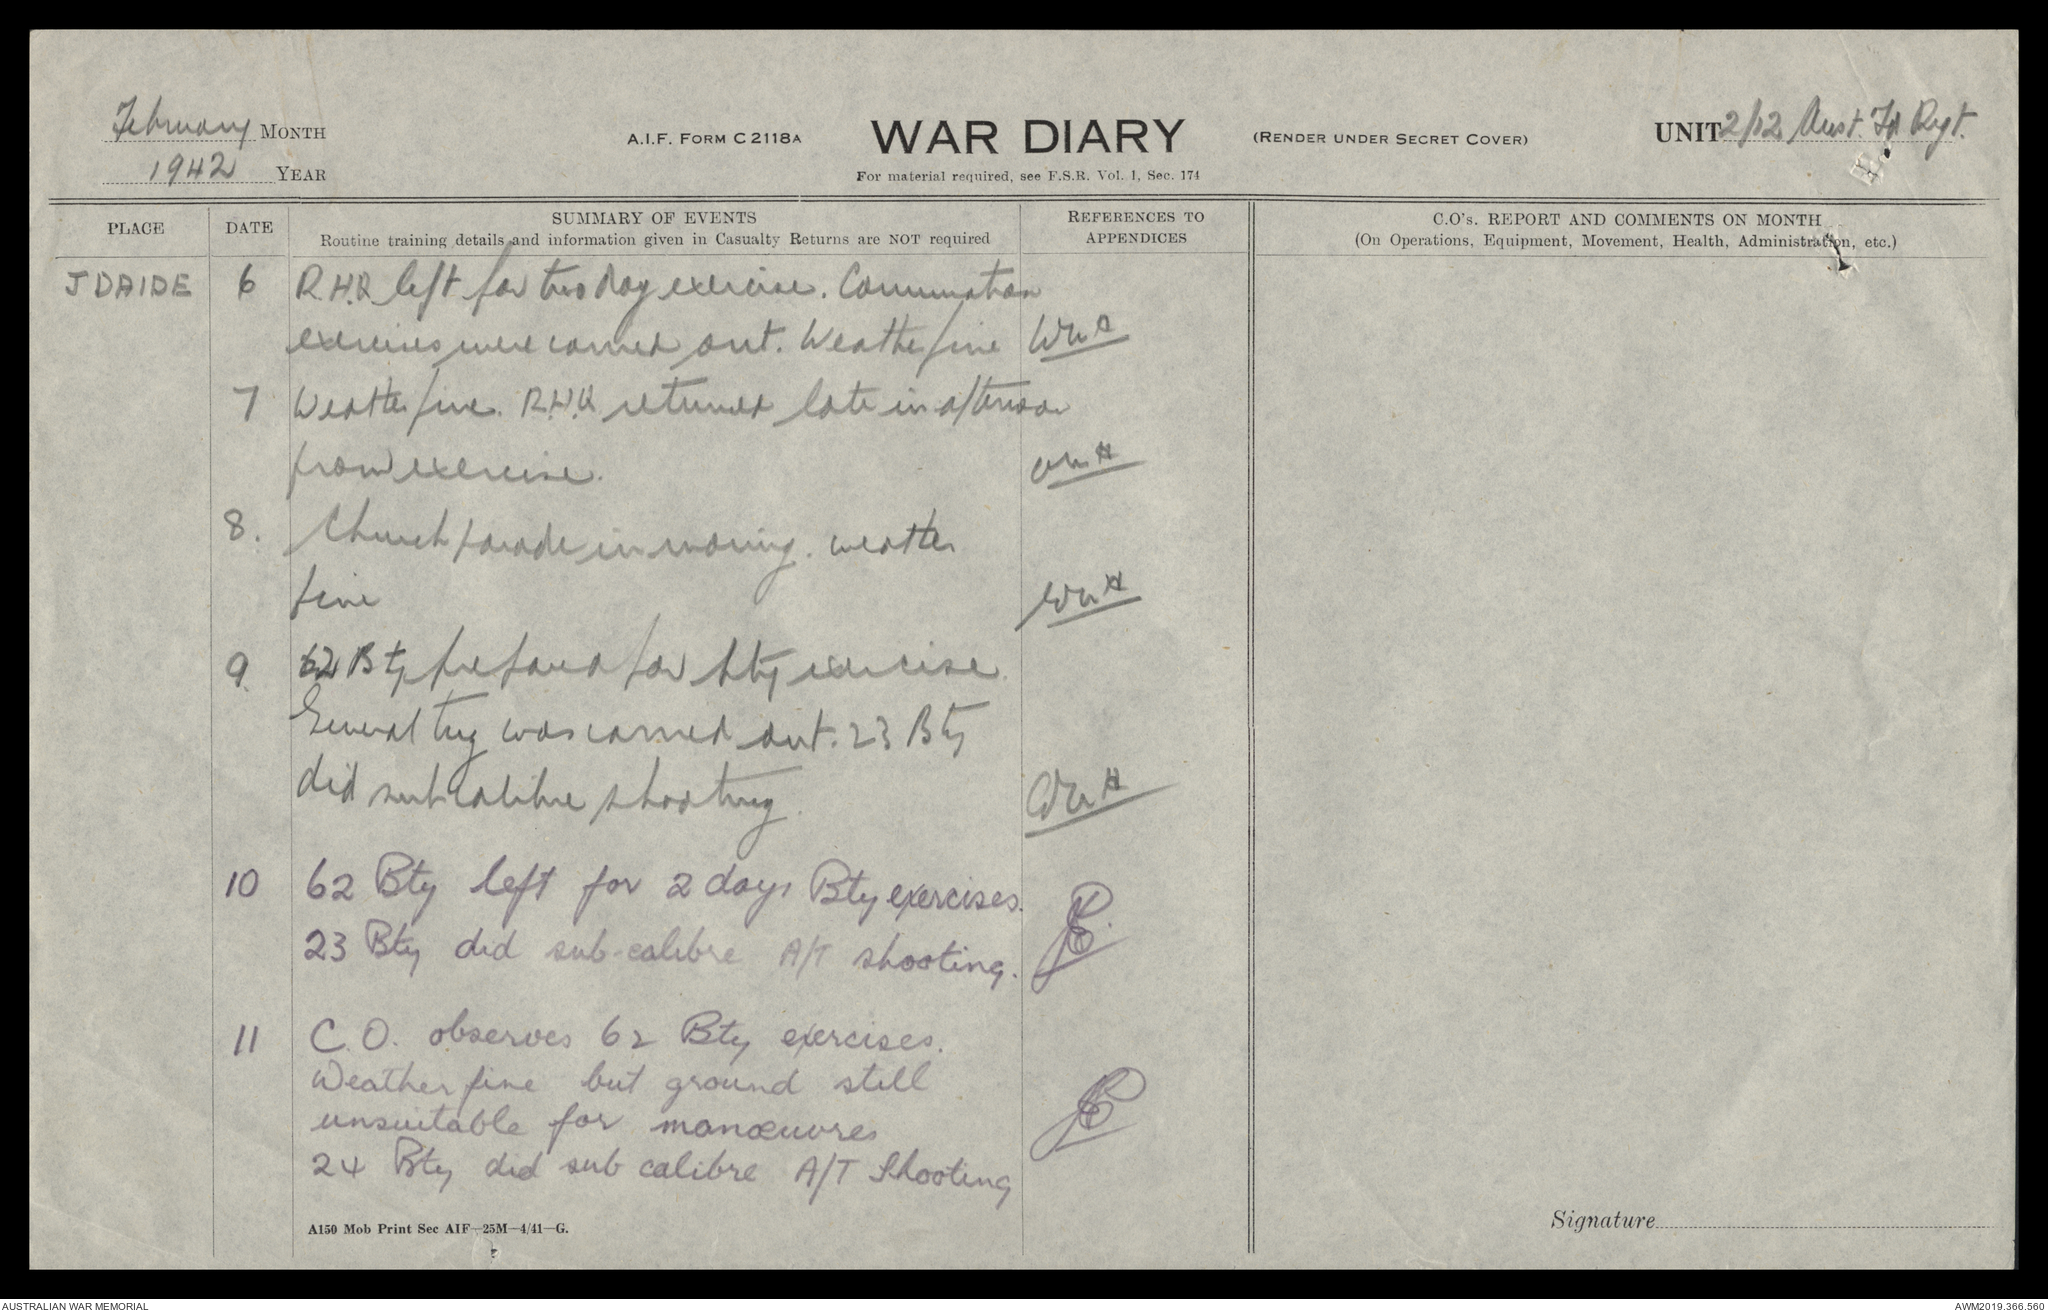 February MONTH
1942 YEAR
A.I.F. FORM C2118A
WAR DIARY
(RENDER UNDER SECRET COVER)
For material required, see F.S.R. Vol. 1, Sec. 174
UNIT 2/12 Aust. Fd Regt.
PLACE
DATE
SUMMARY OF EVENTS
Routine training details and information given in Casualty Returns are NOT required
REFERENCES TO
APPENDICES
C.O's. REPORT AND COMMENTS ON MONTH
(On Operations, Equipment, Movement, Health, Administration, etc.)
JDAIDE 6 R.H.Q left for two day exercise.
exercises were carried out. Weather fine WMH
7 Weather fine. R.H.Q returned late in afternoon
from exercise. WMH
8. Church parade in morning. weather
fine WMH
9. 62 Bty prepared for bty exercise.
General trg was carried out. 23 Bty
did sub calibre shooting. WMH
10 62 Bty left for 2 days Bty exercises.
23 Bty did sub-calibre A/T shooting.
11 C.O. observes 62 Bty exercises.
Weather fine but ground still
unsuitable for manœuvres
24 Bty did sub calibre A/T Shooting
A150 Mob Print Sec AIF—25M—4/41—G.
Signature
AUSTRALIAN WAR MEMORIAL
AWM2019.366.560